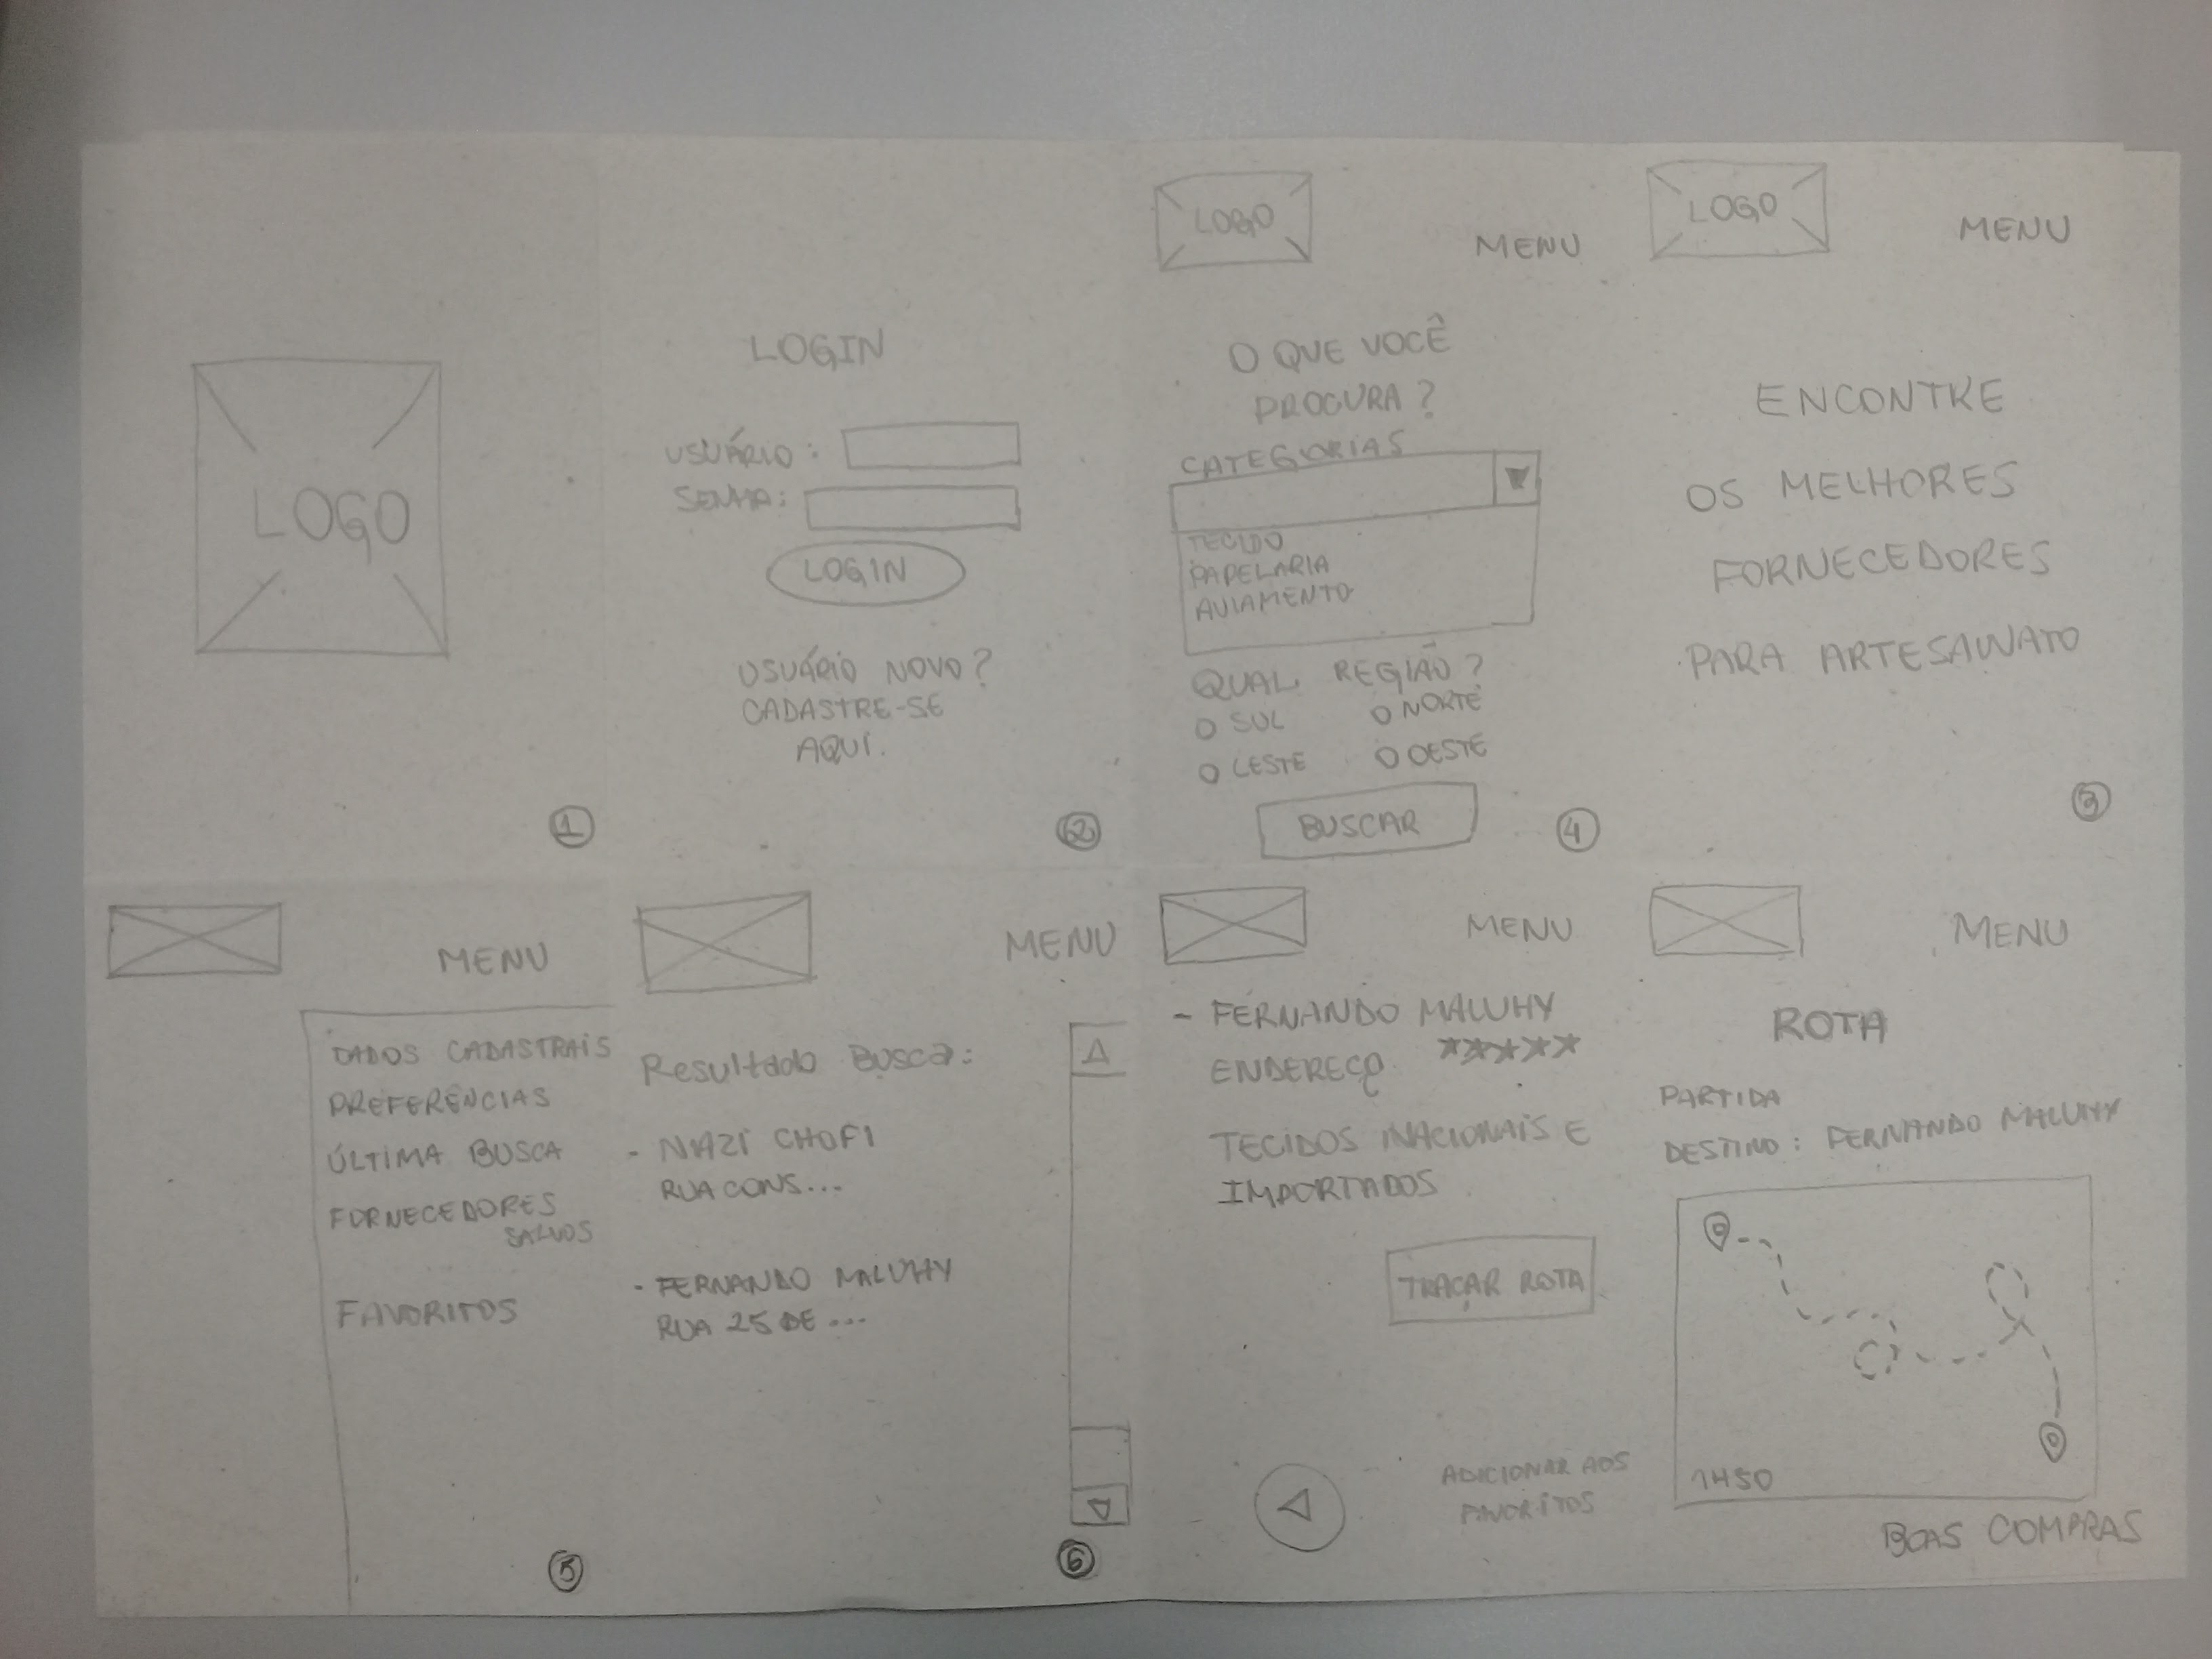 LOGO
1
LOGIN
USUÁRIO:
SENHA:
LOGIN
USUÁRIO NOVO?
CADASTRE-SE
AQUI.
2
LOGO
MENU
O QUE VOCÊ
PROCURA?
CATEGORIAS
TECIDO
PAPELARIA
AVIAMENTO
QUAL REGIÃO?
SUL NORTE
LESTE OESTE
BUSCAR
4
LOGO
MENU
ENCONTRE
OS MELHORES
FORNECEDORES
PARA ARTESANATO
3
MENU
DADOS CADASTRAIS
PREFERÊNCIAS
ÚLTIMA BUSCA
FORNECEDORES
SALVOS
FAVORITOS
5
MENU
Resultado Busca:
- NIAZI CHOFI
RUA CONS...
- FERNANDO MALUHY
RUA 25 DE ...
6
MENU
- FERNANDO MALUHY
ENDEREÇO
TECIDOS NACIONAIS E
IMPORTADOS
TRAÇAR ROTA
ADICIONAR AOS
FAVORITOS
MENU
ROTA
PARTIDA
DESTINO: FERNANDO MALUHY
1H50
BOAS COMPRAS